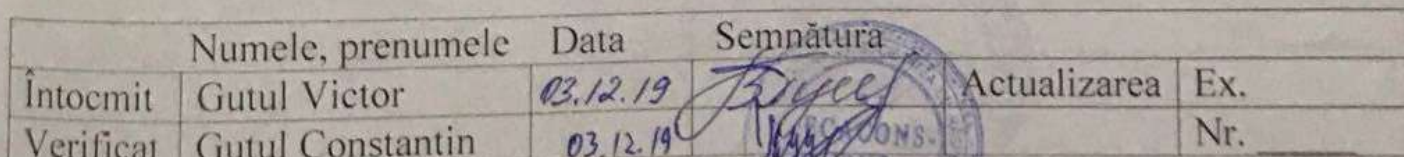 Numele, prenumele Data Semnătura
Întocmit Gutul Victor 03.12.19 Actualizarea Ex.
Verificat Gutul Constantin 03.12.19 Nr.